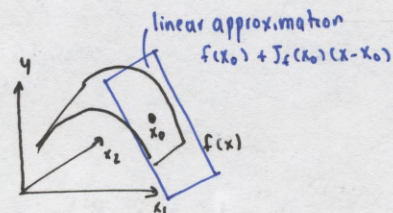 linear approximation
f(x₀) + J_f(x₀)(x-x₀)
y
x₀
f(x)
x₂
x₁